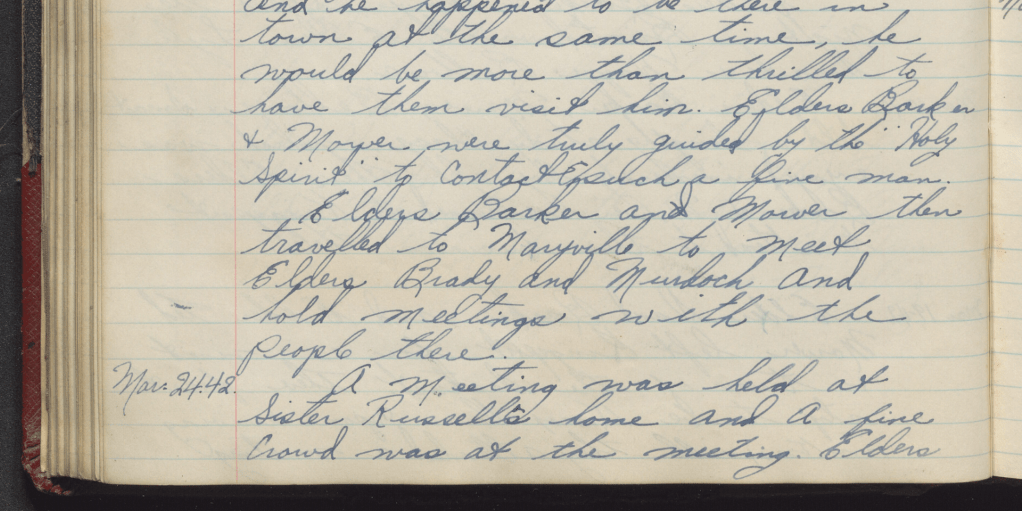 and he happened to be there in
town at the same time, he
would be more than thrilled to
have them visit him. Elders Barker
& Mower were truly guided by the "Holy
Spirit" to contact such a fine man.
Elders Barker and Mower then
travelled to Maryville to meet
Elders Brady and Murdoch and
hold meetings with the
people there.
Mar. 24.42. A meeting was held at
Sister Russell's home and a fine
crowd was at the meeting. Elders